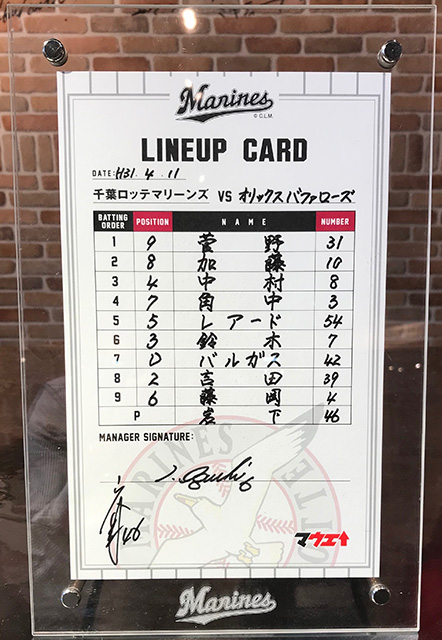 Marines
© C.L.M.
LINEUP CARD
DATE: H31. 4. 11
千葉ロッテマリーンズ VS オリックスバファローズ
BATTING ORDER POSITION NAME NUMBER
1 9 菅野 31
2 8 加藤 10
3 4 中村 8
4 7 角中 3
5 5 レアード 54
6 3 鈴木 7
7 D バルガス 42
8 2 吉田 39
9 6 藤岡 4
P 岩下 46
MANAGER SIGNATURE:
6
46
MARINES
LOTTE
マウエ↑
Marines